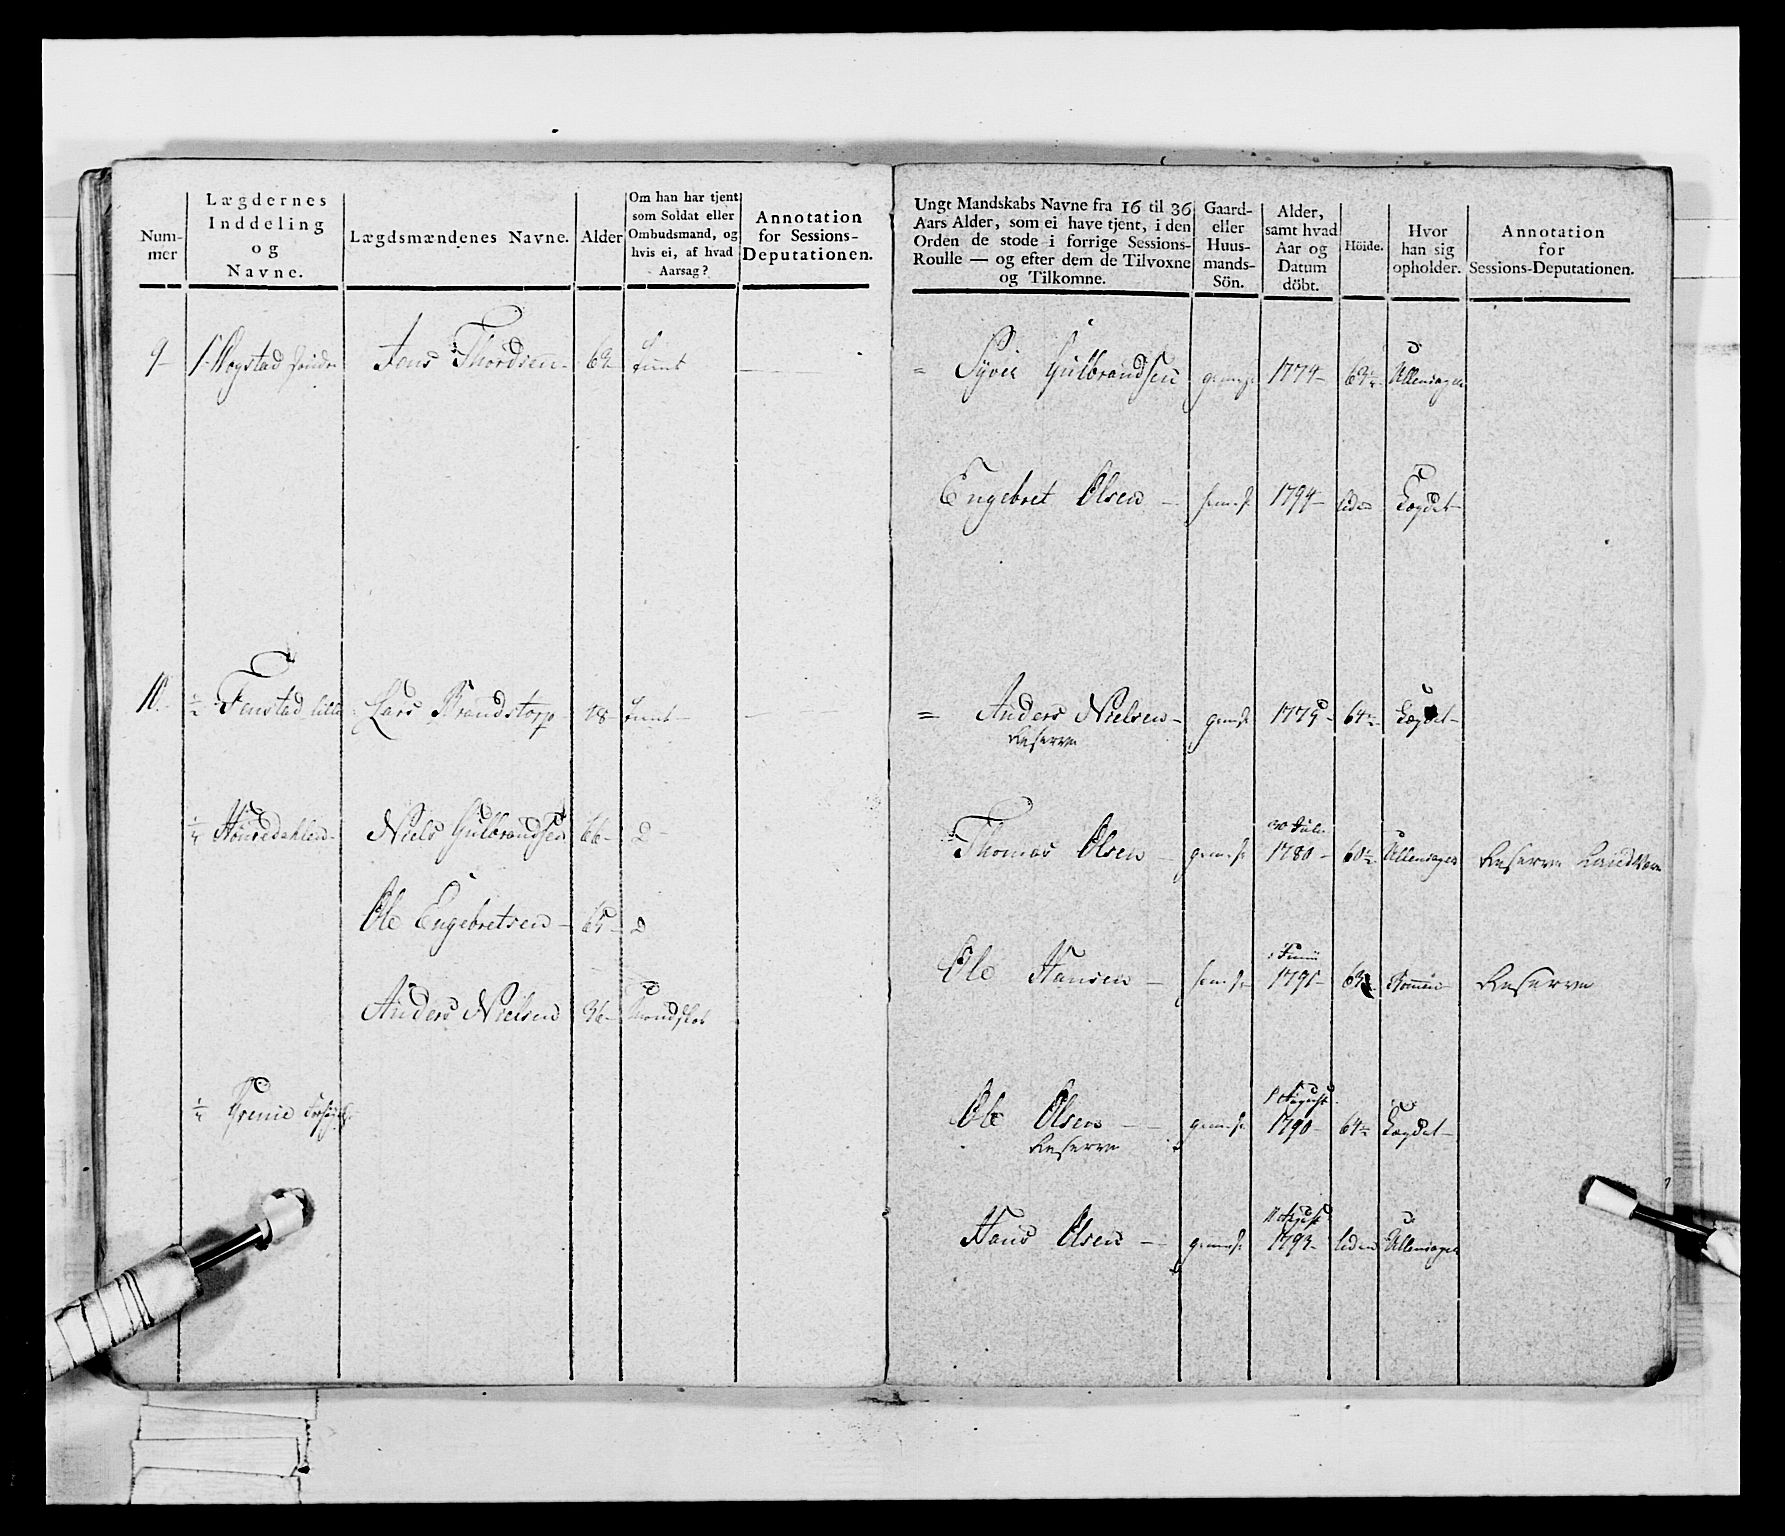 Num-
mer
Lægdernes
Inddeling
og
Navne.
Lægdsmændenes Navne.
Alder
Om han har tjent
som Soldat eller
Ombudsmand, og
hvis ei, af hvad
Aarsag?
Annotation
for Sessions-
Deputationen.
9 — 1 Hogstad søndre Jens Thordsen — 62 — tient
10. ½ Fenstad lille Lars Brandstorp — 78 tient —
¼ Niels Gulbrandsen 66 — D —
Ole Engebretsen — 65 — D
Anders Nielsen 36 —
¼
Ungt Mandskabs Navne fra 16 til 36
Aars Alder, som ei have tjent, i den
Orden de stode i forrige Sessions-
Roulle — og efter dem de Tilvoxne
og Tilkomne.
Gaard-
eller
Huus-
mands-
Sön.
Alder,
samt hvad
Aar og
Datum
döbt.
Höide.
Hvor
han sig
opholder.
Annotation
for
Sessions-Deputationen.
= Syver Gulbrandsen 1774 — 63½ Ullensager
Engebret Olsen — 1794 — liden Lægdet —
= Anders Nielsen — 1775 — 64½ Lægdet —
Reserve
30 Julii
Thomas Olsen — 1780 — 60½ Ullensager Reserve Landværn
1 Junii
Ole Hansen — 1791 — 63 Reserve
1 August
Ole Olsen — 1790 — 64½ Lægdet —
Reserve
11 August
Hans Olsen — 1793 — liden Ullensager